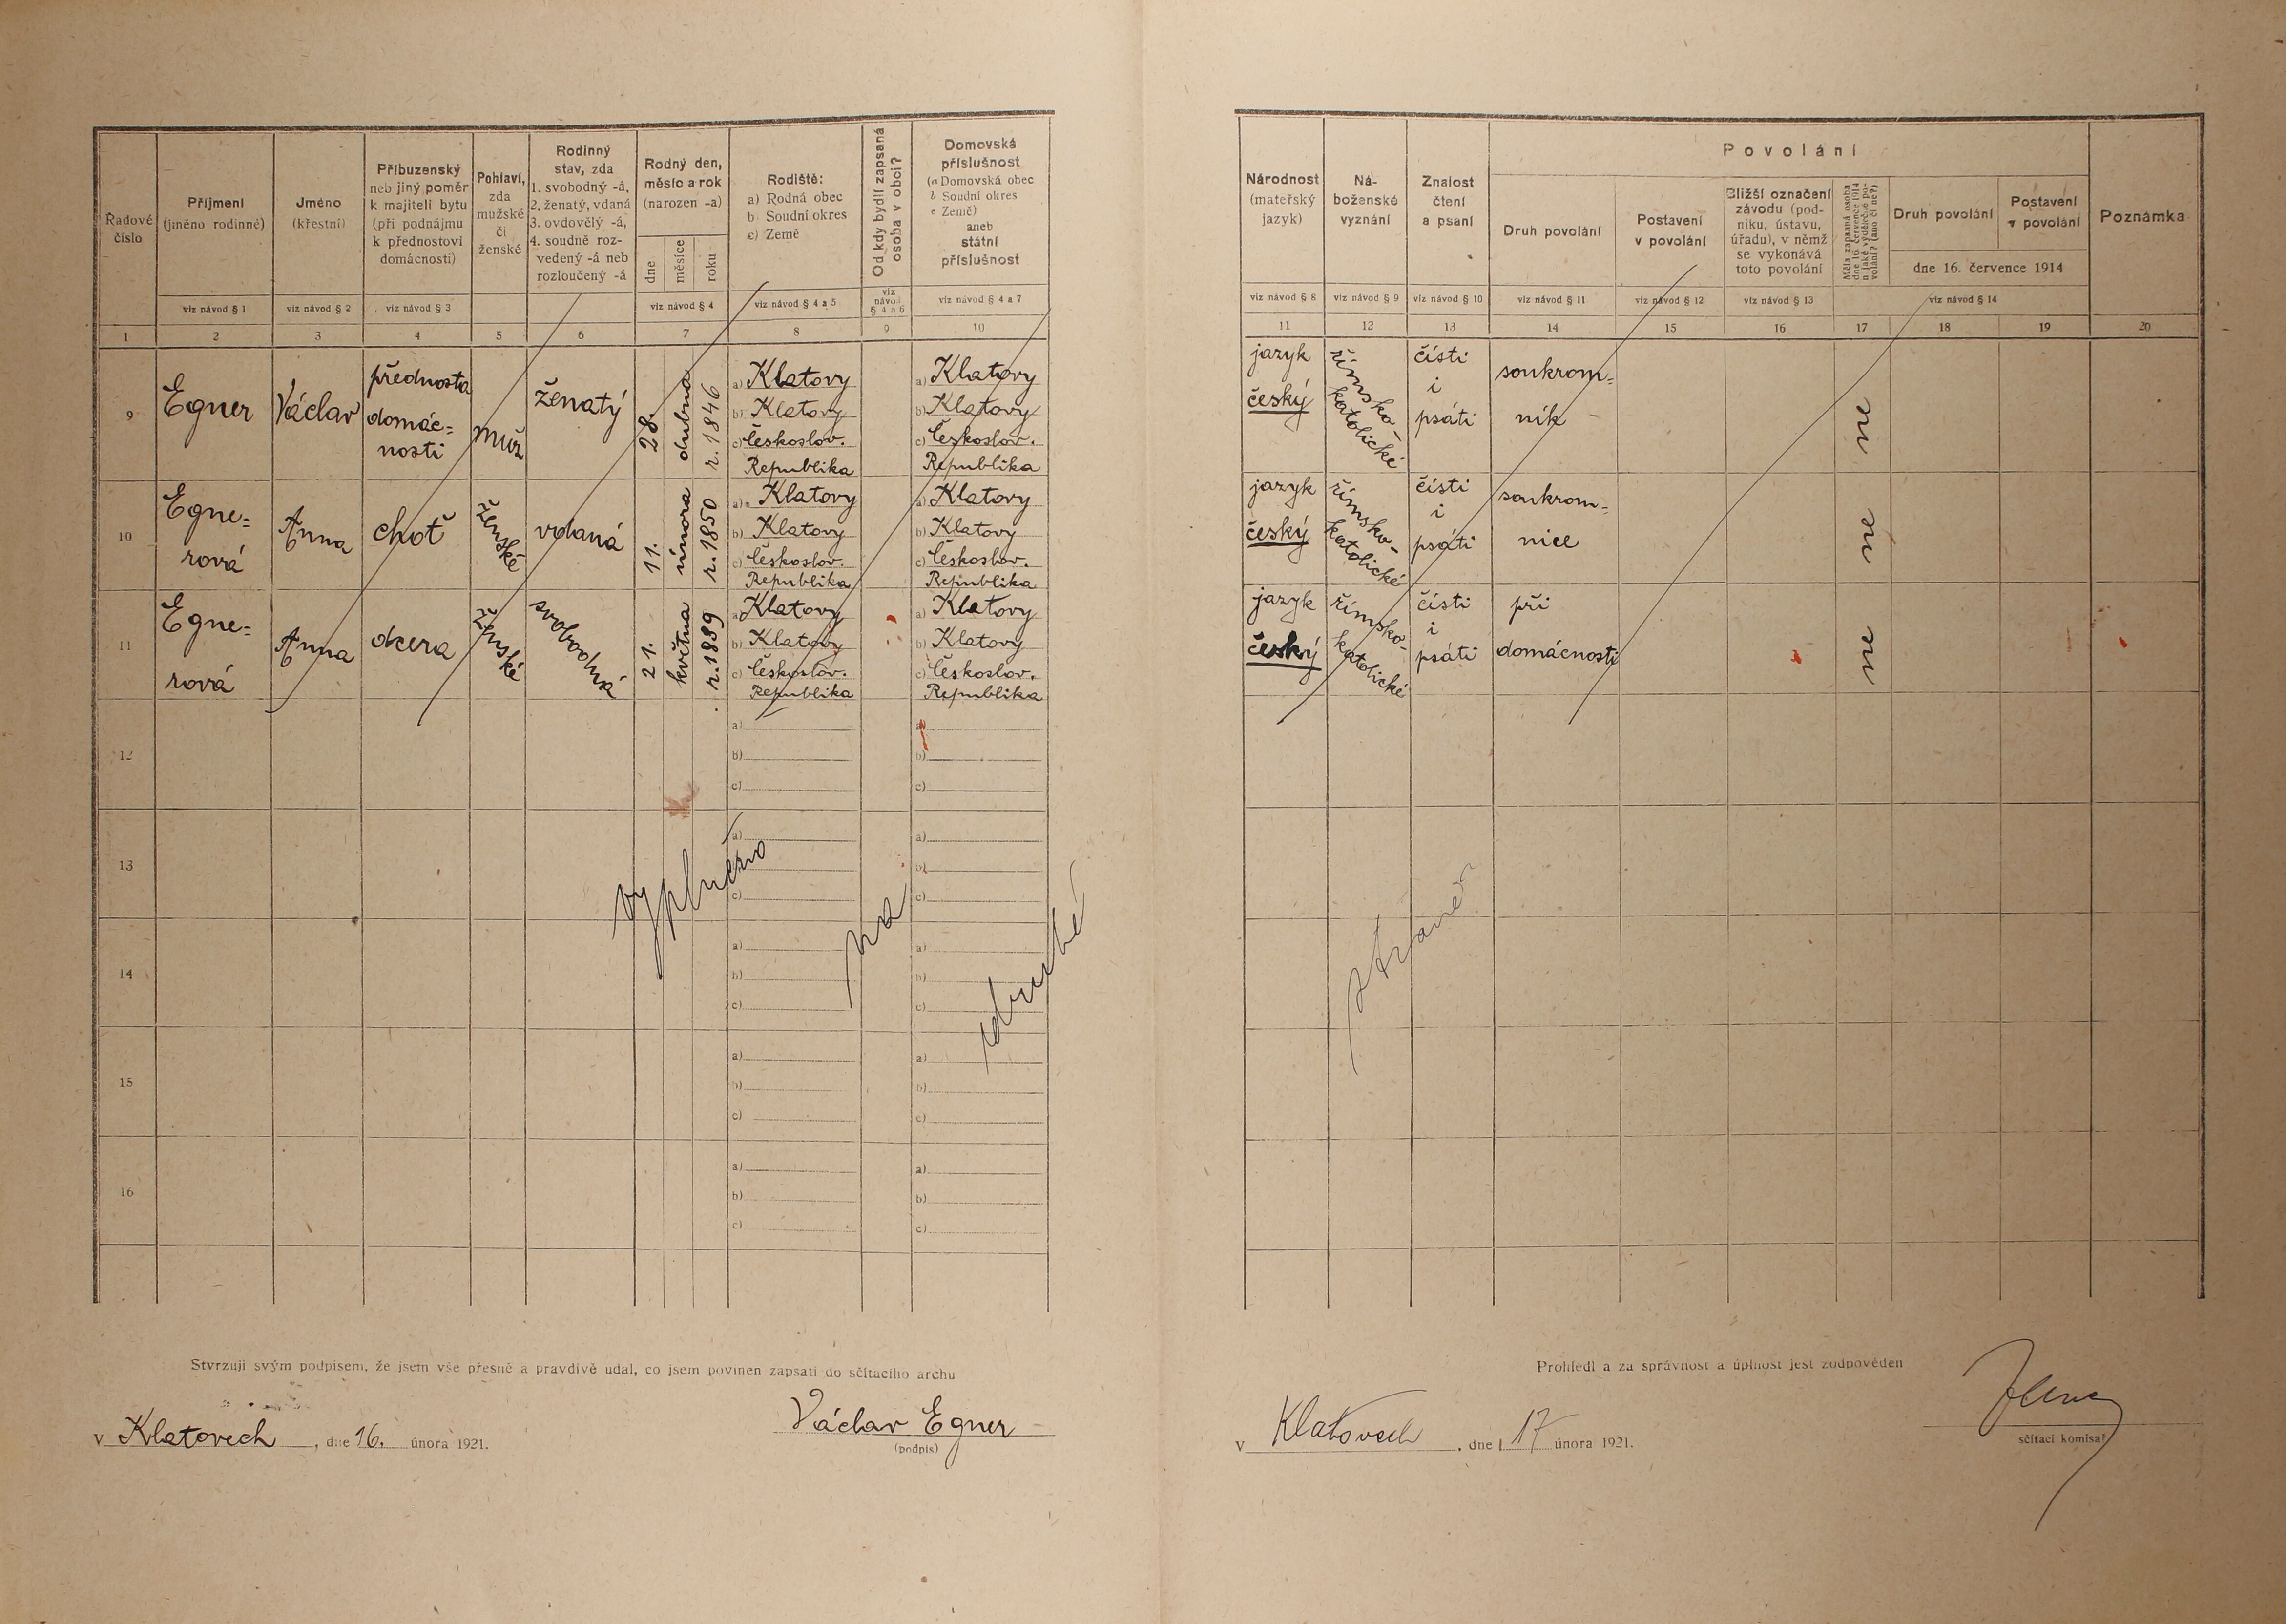 Řadové číslo
Příjmení
(jméno rodinné)
viz návod § 1
Jméno
(křestní)
viz návod § 2
Příbuzenský
neb jiný poměr
k majiteli bytu
(při podnájmu
k přednostovi
domácnosti)
viz návod § 3
Pohlaví,
zda
mužské
či
ženské
Rodinný
stav, zda
1. svobodný -á,
2. ženatý, vdaná
3. ovdovělý -á,
4. soudně roz-
vedený -á neb
rozloučený -á
Rodný den,
měsíc a rok
(narozen -a)
dne
měsíce
roku
viz návod § 4
Rodiště:
a) Rodná obec
b) Soudní okres
c) Země
viz návod § 4 a 5
Od kdy bydlí zapsaná
osoba v obci?
viz
návod
§ 4 a 6
Domovská
příslušnost
(a Domovská obec
b Soudní okres
c Země)
aneb
státní
příslušnost
viz návod § 4 a 7
Národnost
(mateřský
jazyk)
viz návod § 8
Ná-
boženské
vyznání
viz návod § 9
Znalost
čtení
a psaní
viz návod § 10
Povolání
Druh povolání
viz návod § 11
Postavení
v povolání
viz návod § 12
Bližší označení
závodu (pod-
niku, ústavu,
úřadu), v němž
se vykonává
toto povolání
viz návod § 13
Měla zapsaná osoba
dne 16. července 1914
nějaké výdělečné po-
volání? (ano či ne?)
Druh povolání
Postavení
v povolání
dne 16. července 1914
viz návod § 14
Poznámka
1 2 3 4 5 6 7 8 9 10 11 12 13 14 15 16 17 18 19 20
9
Egner
Václav
přednosta
domác=
nosti
muž
ženatý
28.
dubna
r. 1846
a) Klatovy
b) Klatovy
c) Českoslov.
Republika
a) Klatovy
b) Klatovy
c) Českoslov.
Republika
jazyk
český
římsko-
katolické
čísti
i
psáti
soukrom=
ník
ne
10
Egne=
rová
Anna
choť
ženské
vdaná
11.
února
r. 1850
a) Klatovy
b) Klatovy
c) Českoslov.
Republika
a) Klatovy
b) Klatovy
c) Českoslov.
Republika
jazyk
český
římsko-
katolické
čísti
i
psáti
soukrom=
nice
ne
11
Egne=
rová
Anna
dcera
ženské
svobodná
21.
května
r. 1889
a) Klatovy
b) Klatovy
c) Českoslov.
Republika
a) Klatovy
b) Klatovy
c) Českoslov.
Republika
jazyk
český
římsko-
katolické
čísti
i
psáti
při
domácnosti
ne
12
a)
b)
c)
a)
b)
c)
13
a)
c)
a)
b)
c)
14
a)
b)
c)
a)
b)
c)
15
a)
b)
c)
a)
b)
c)
16
a)
b)
c)
a)
b)
c)
vyplněno
na
druhé
straně
Stvrzuji svým podpisem, že jsem vše přesně a pravdivě udal, co jsem povinen zapsati do sčítacího archu
v Klatovech, dne 16. února 1921.
Václav Egner
(podpis)
Prohlédl a za správnost a úplnost jest zodpověden
v Klatovech, dne 17 února 1921.
sčítací komisař